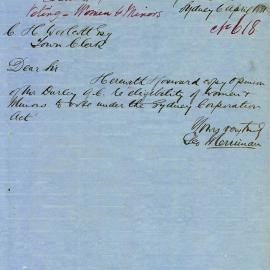 Voting - Women & Minors
Sydney 6 April
No 618
C. H. Woolcott Esq
Town Clerk
Dear Sir
Herewith I forward copy opinion
of Mr Darley Q.C. re eligibility of Women &
Minors to vote under the Sydney Corporation
Act
Yours very truly
Geo Merriman